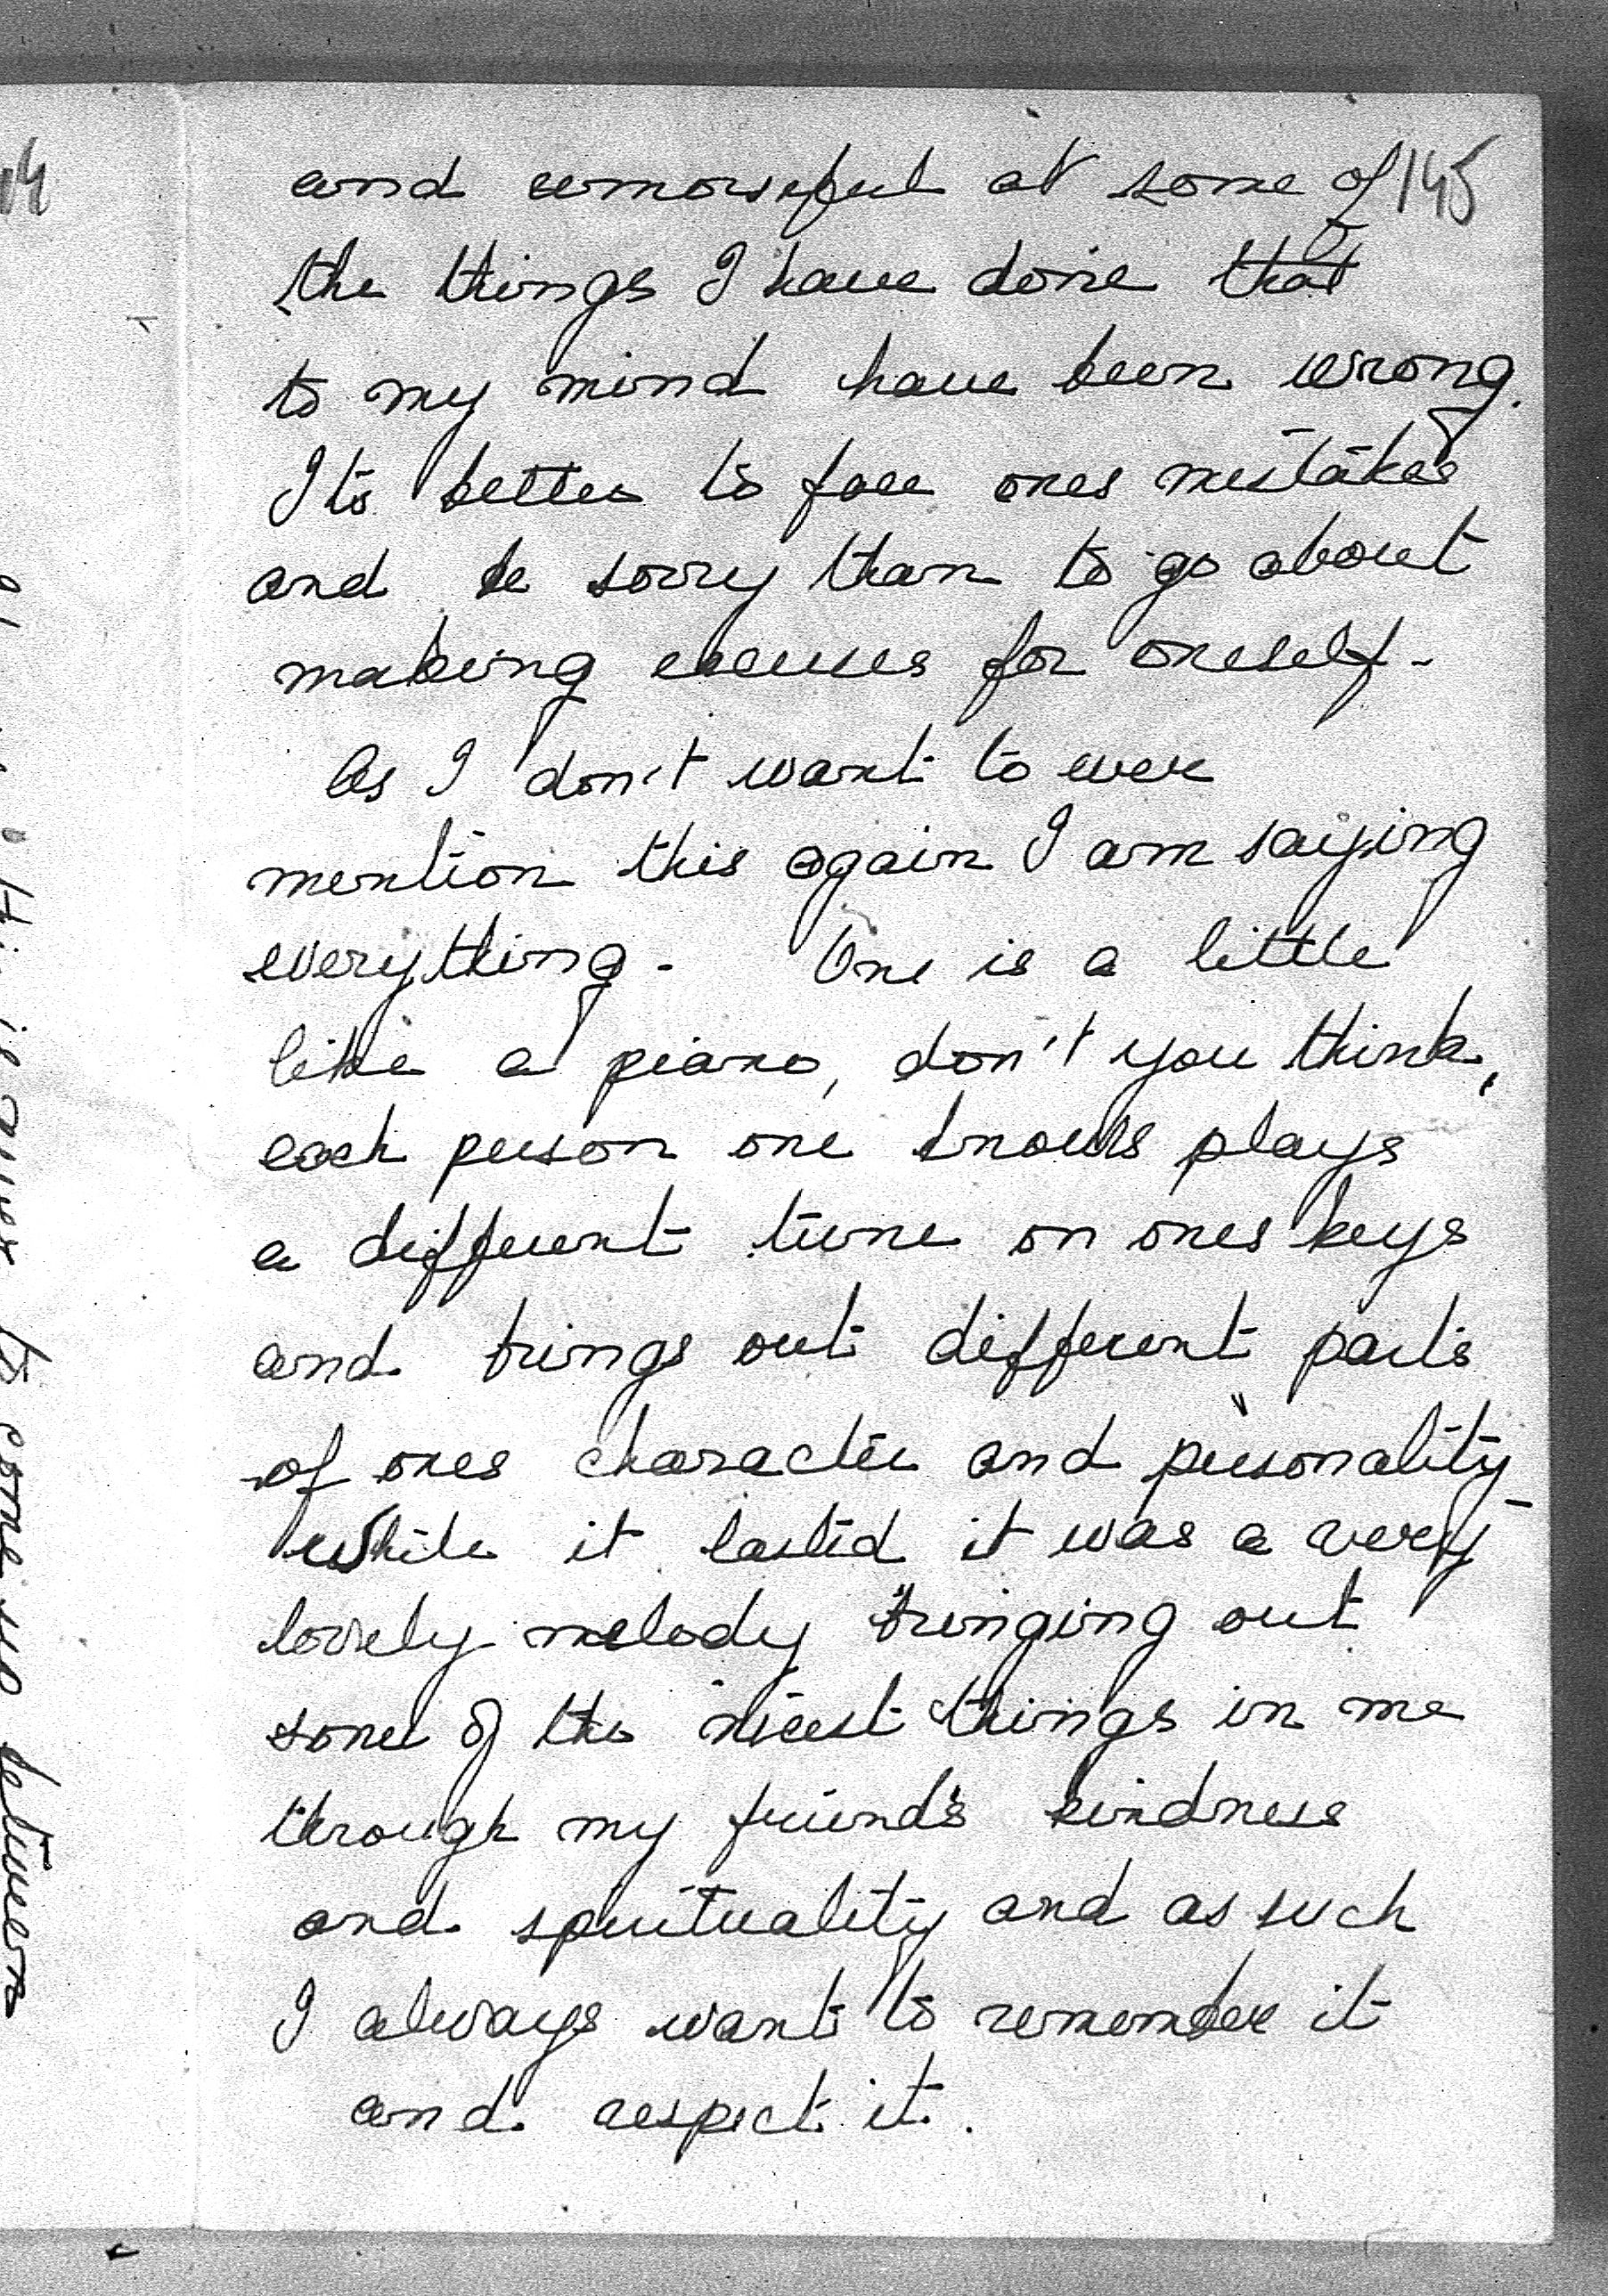 145
and remorseful at some of
the things I have done that
to my mind have been wrong.
Its better to face ones mistakes
and be sorry than to go about
making excuses for oneself -
As I don't want to ever
mention this again I am saying
everything - One is a little
like a piano, don't you think,
each person one knows plays
a different tune on ones keys
and brings out different parts
of ones character and personality -
While it lasted it was a very
lovely melody bringing out
some of the nicest things in me
through my friend's kindness
and spirituality and as such
I always want to remember it
and respect it.